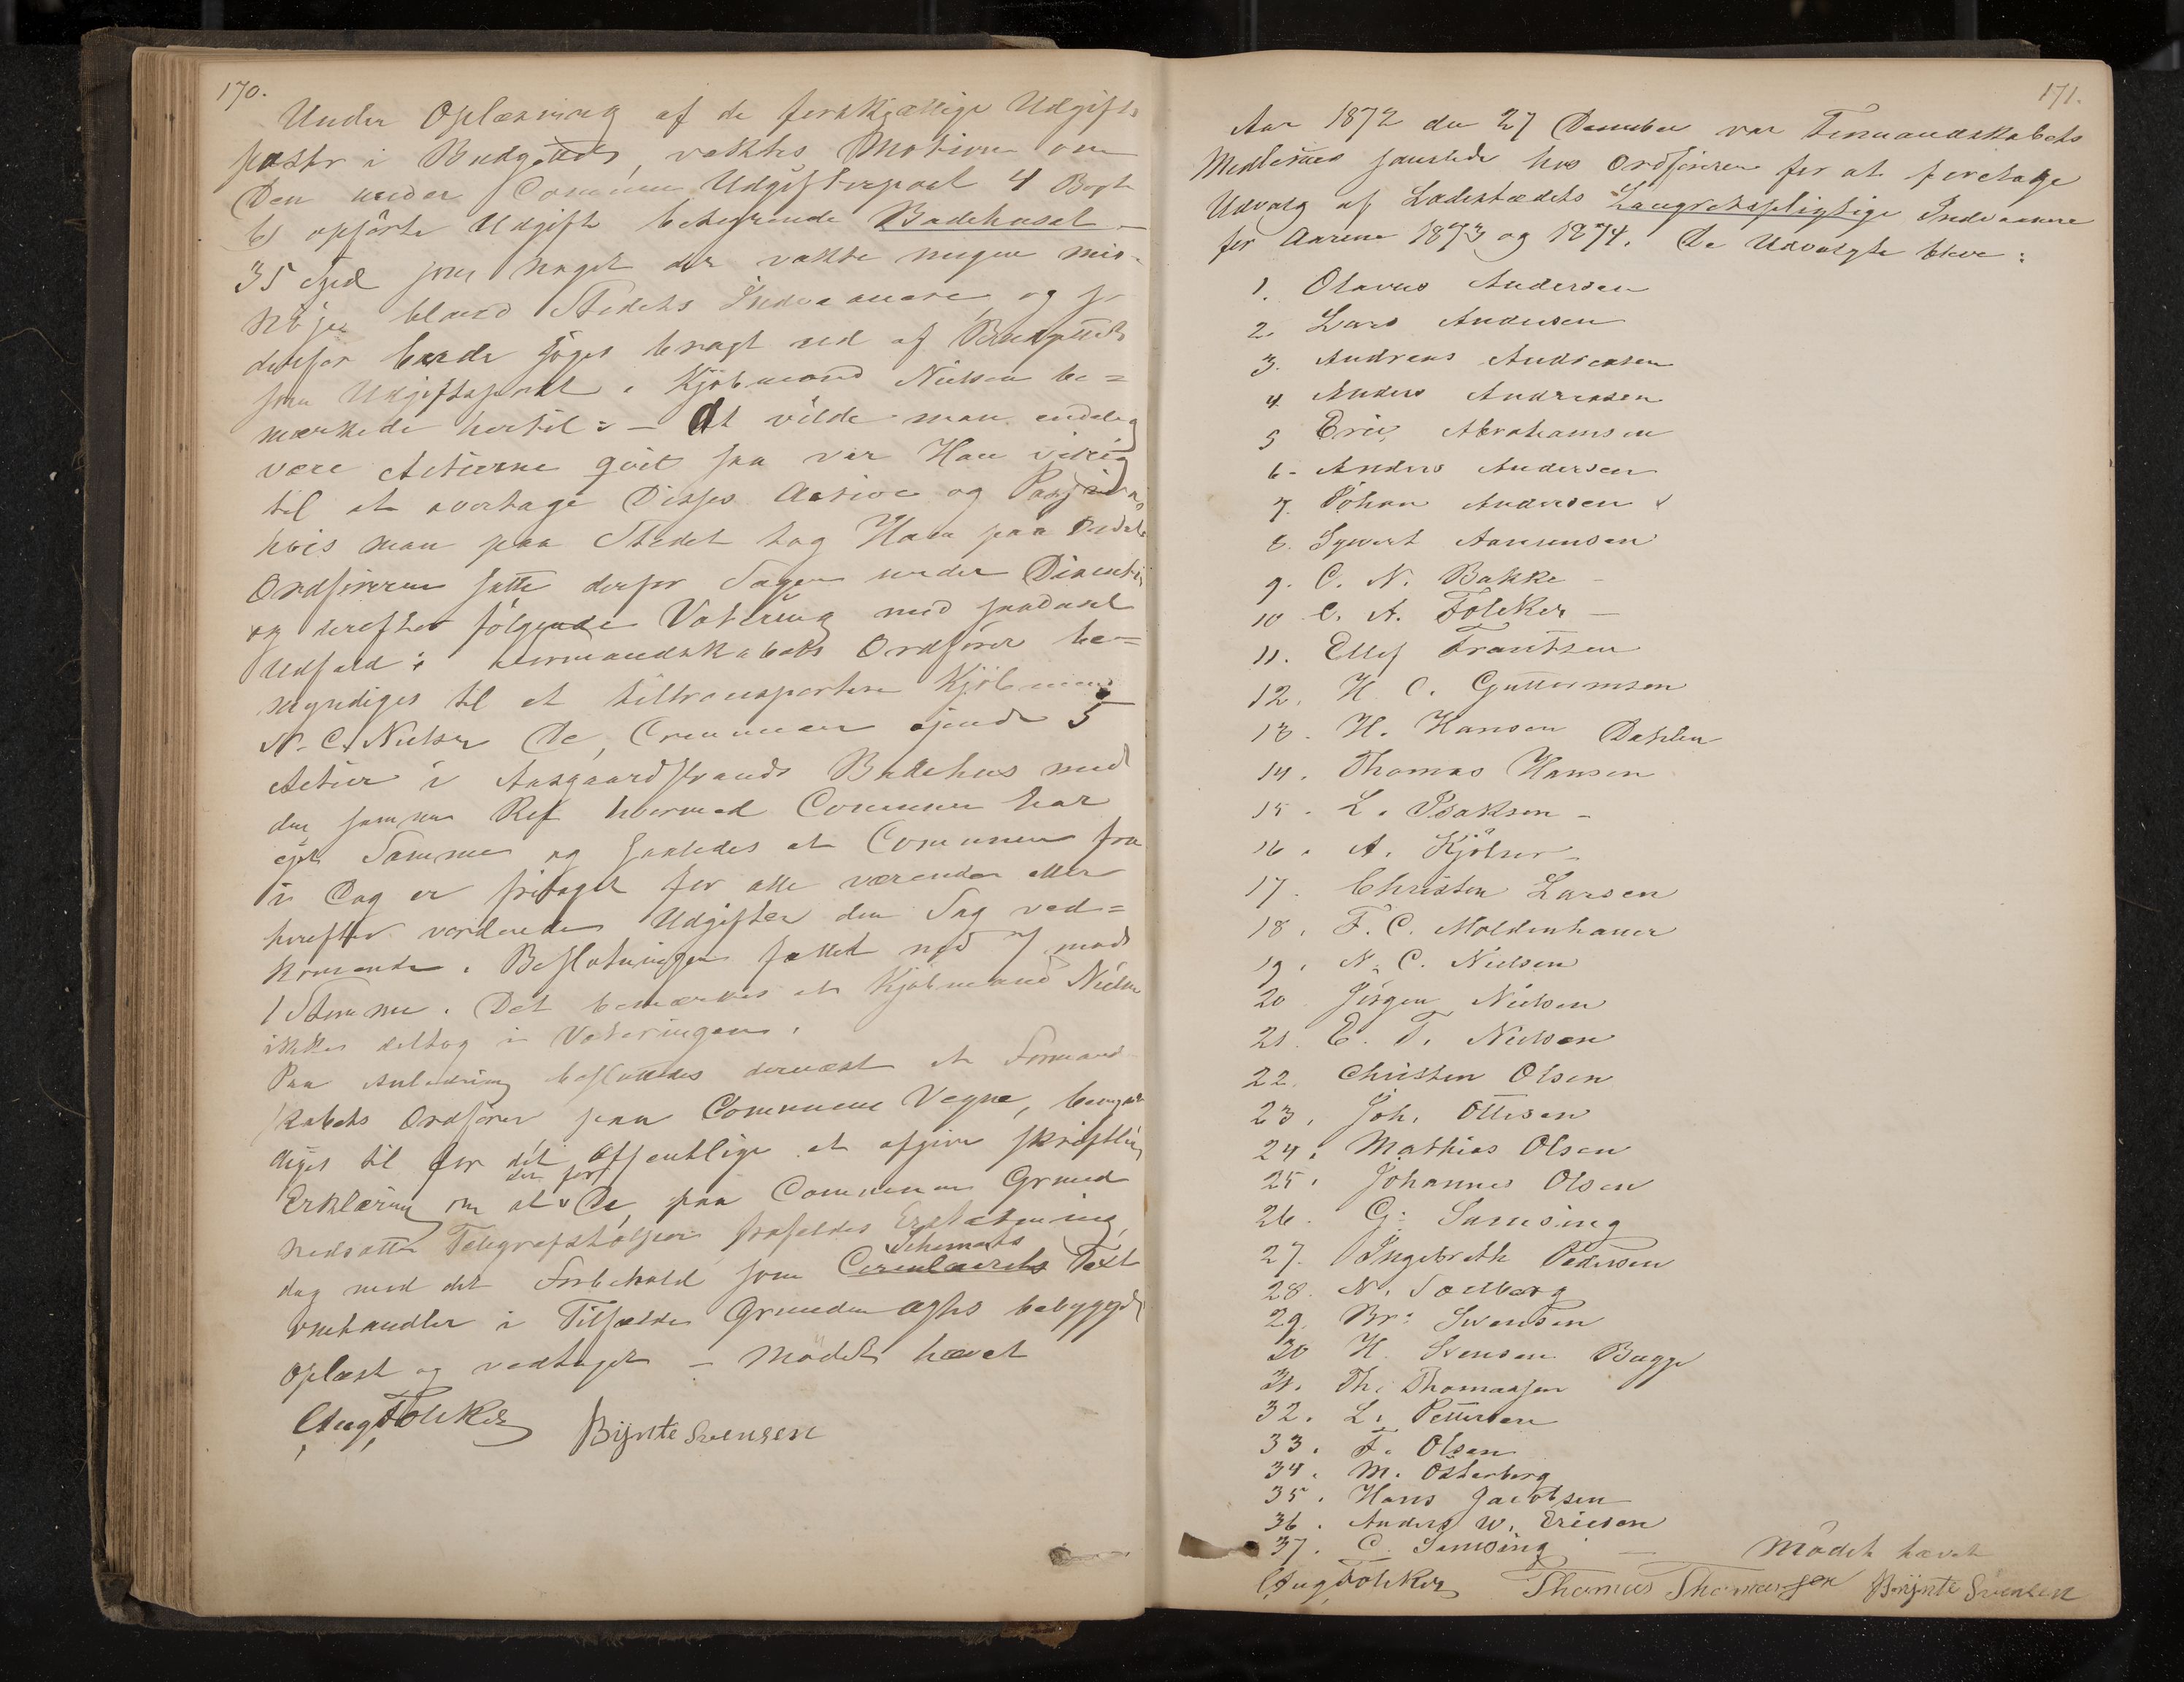 170.
Under Oplæsning af de forskjællige Udgifts
poster i Budgettet, vaktes Motion om
Den under Commun Udgifterpost 4 Bogst
b) opførte Udgift betegnende Badehuset
35 Spd som noget der vakte megen mis-
nöje bland Stedets Indvaanere, og so
derfor burde söges bragt ud af Budgettet
som Udgiftspost. Kjöbmand Nielsen be=
mærkede hertil: – At vilde man endelig
være Actierne qvit saa var Han villig
til at overtage Disses Active og Passiva
hvis man paa Stedet tog Ham paa Ordet
Ordföreren satte derfor Sagen under Discution
og derefter fölgende Votering med saadant
Udfald: Formandskabets Ordförer be=
myndiges til at tiltransportere Kjöbmand
N. C. Nielsen De, Communen ejende 5
Actier i Aasgaardstrands Badehus med
den samme Ret hvormed Communen har
ejet Samme og saaledes at Communen fra
i Dag er fritaget for alle værende eller
herefter vordende Udgifter den Sag ved=
kommende. Beslutningen fattet med 7 mod
1 Stemme. Det bemærkes at Kjöbmand Nielsen
ikke deltog i Voteringen.
Paa Anledning besluttedes dernæst at Formand
skabets Ordförer paa Communens Vegne, bemyn
diges til for det Offentlige at afgive skriftlig
Erklæring om at der for De, paa Communens Grund
nedsatte Telegrafstolper frafaldes Erstatning,
dog med det Forbehold som Circulairets Schemats Text
omhandler i Tilfælde Grunden agtes bebygget
Oplæst og vedtaget – Mödet hævet
Aug Fölcker Bijnte Svensen
171.
Aar 1872 den 27 December var Formandskabets
Medlemmer samlede hos Ordföreren for at foretage
Udvalg af Ladestædets Laugretspligtige Indvaanere
for Aarene 1873 og 1874. De Udvalgte bleve:
1. Olavus Andersen
2. Lars Andersen
3. Andreas Andreasen
4. Anders Andreasen
5 Eric Abrahamsen
6 - Anders Andersen
7. Johan Andersen
8. Sywert Aanunsen
9. C. N. Bakke –
10 C. A. Fölcker –
11. Ellef Frantsen
12. H. C. Guttormsen
13. H. Hansen Dahlen
14. Thomas Hansen
15. L. Isaksen –
16. A. Kjölner –
17. Christen Larsen
18. F. C. Moldenhauer
19. N. C. Nielsen
20. Jörgen Nielsen
21. E. T. Nielsen
22. Christen Olsen
23. Joh. Ottesen
24. Mathias Olsen
25. Johannes Olsen
26. G. Samsing
27. Ingebreth Pedersen
28. N. Soelberg
29. Br: Svensen
30 H. Svensen Bugge
31. Th. Thomassen
32. L. Pettersen
33. F. Olsen
34. M. Österberg
35. Hans Jacobsen
36. Anders W. Ericsen
37. C. Samsing – Mödet hævet
Aug Fölcker Thomas Thomassen Bijnte Svensen